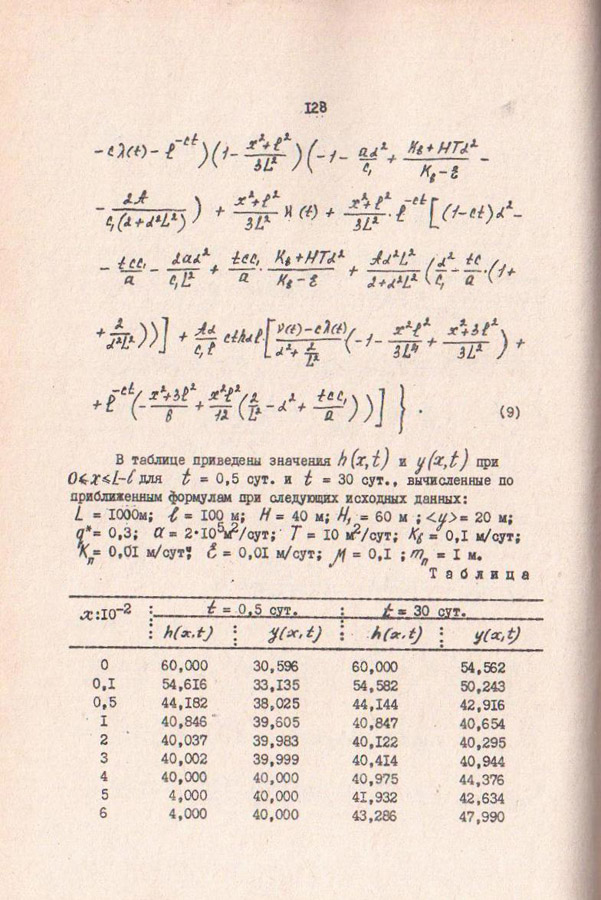 128
-cλ(t) - ℓ^{-ct})(1 - (x²+ℓ²)/(3L²))(-1 - aα²/c₁ + (K_в+HTα²)/(K_в-ε) -
- 2A/(c₁(2+α²L²))) + (x²+ℓ²)/(3L²) M(t) + (x²+ℓ²)/(3L²)·ℓ^{-ct}[(1-ct)α² -
- tcc₁/a - 2aα²/(c₁L²) + tcc₁/a · (K_в+HTα²)/(K_в-ε) + Aα²L²/(2+α²L²) (α²/c₁ - tc/a ·(1+
+ 2/(α²L²)))] + Aα/(c₁ℓ) cthαℓ[(ν(t)-cλ(t))/(α²+2/L²) (-1 - x²ℓ²/(3L⁴) + (x²+3ℓ²)/(3L²)) +
+ℓ^{-ct}(-(x²+3ℓ²)/6 + x²ℓ²/12 (2/L² - α² + tcc₁/a))]}. (9)
В таблице приведены значения h(x,t) и y(x,t) при
0≤x≤L-ℓ для t = 0,5 сут. и t = 30 сут., вычисленные по
приближенным формулам при следующих исходных данных:
L = 1000м; ℓ = 100 м; H = 40 м; H₁ = 60 м ; <y>= 20 м;
q*= 0,3; a = 2·10⁵м²/сут; T = 10 м²/сут; K_в = 0,1 м/сут;
K_п = 0,01 м/сут; ε = 0,01 м/сут; μ = 0,1 ; m_п = 1 м.
Таблица
x:10⁻² : t = 0,5 сут. : t = 30 сут.
: h(x,t) : y(x,t) : h(x,t) : y(x,t)
0 60,000 30,596 60,000 54,562
0,1 54,616 33,135 54,582 50,243
0,5 44,182 38,025 44,144 42,916
1 40,846 39,605 40,847 40,654
2 40,037 39,983 40,122 40,295
3 40,002 39,999 40,414 40,944
4 40,000 40,000 40,975 44,376
5 4,000 40,000 41,932 42,634
6 4,000 40,000 43,286 47,990